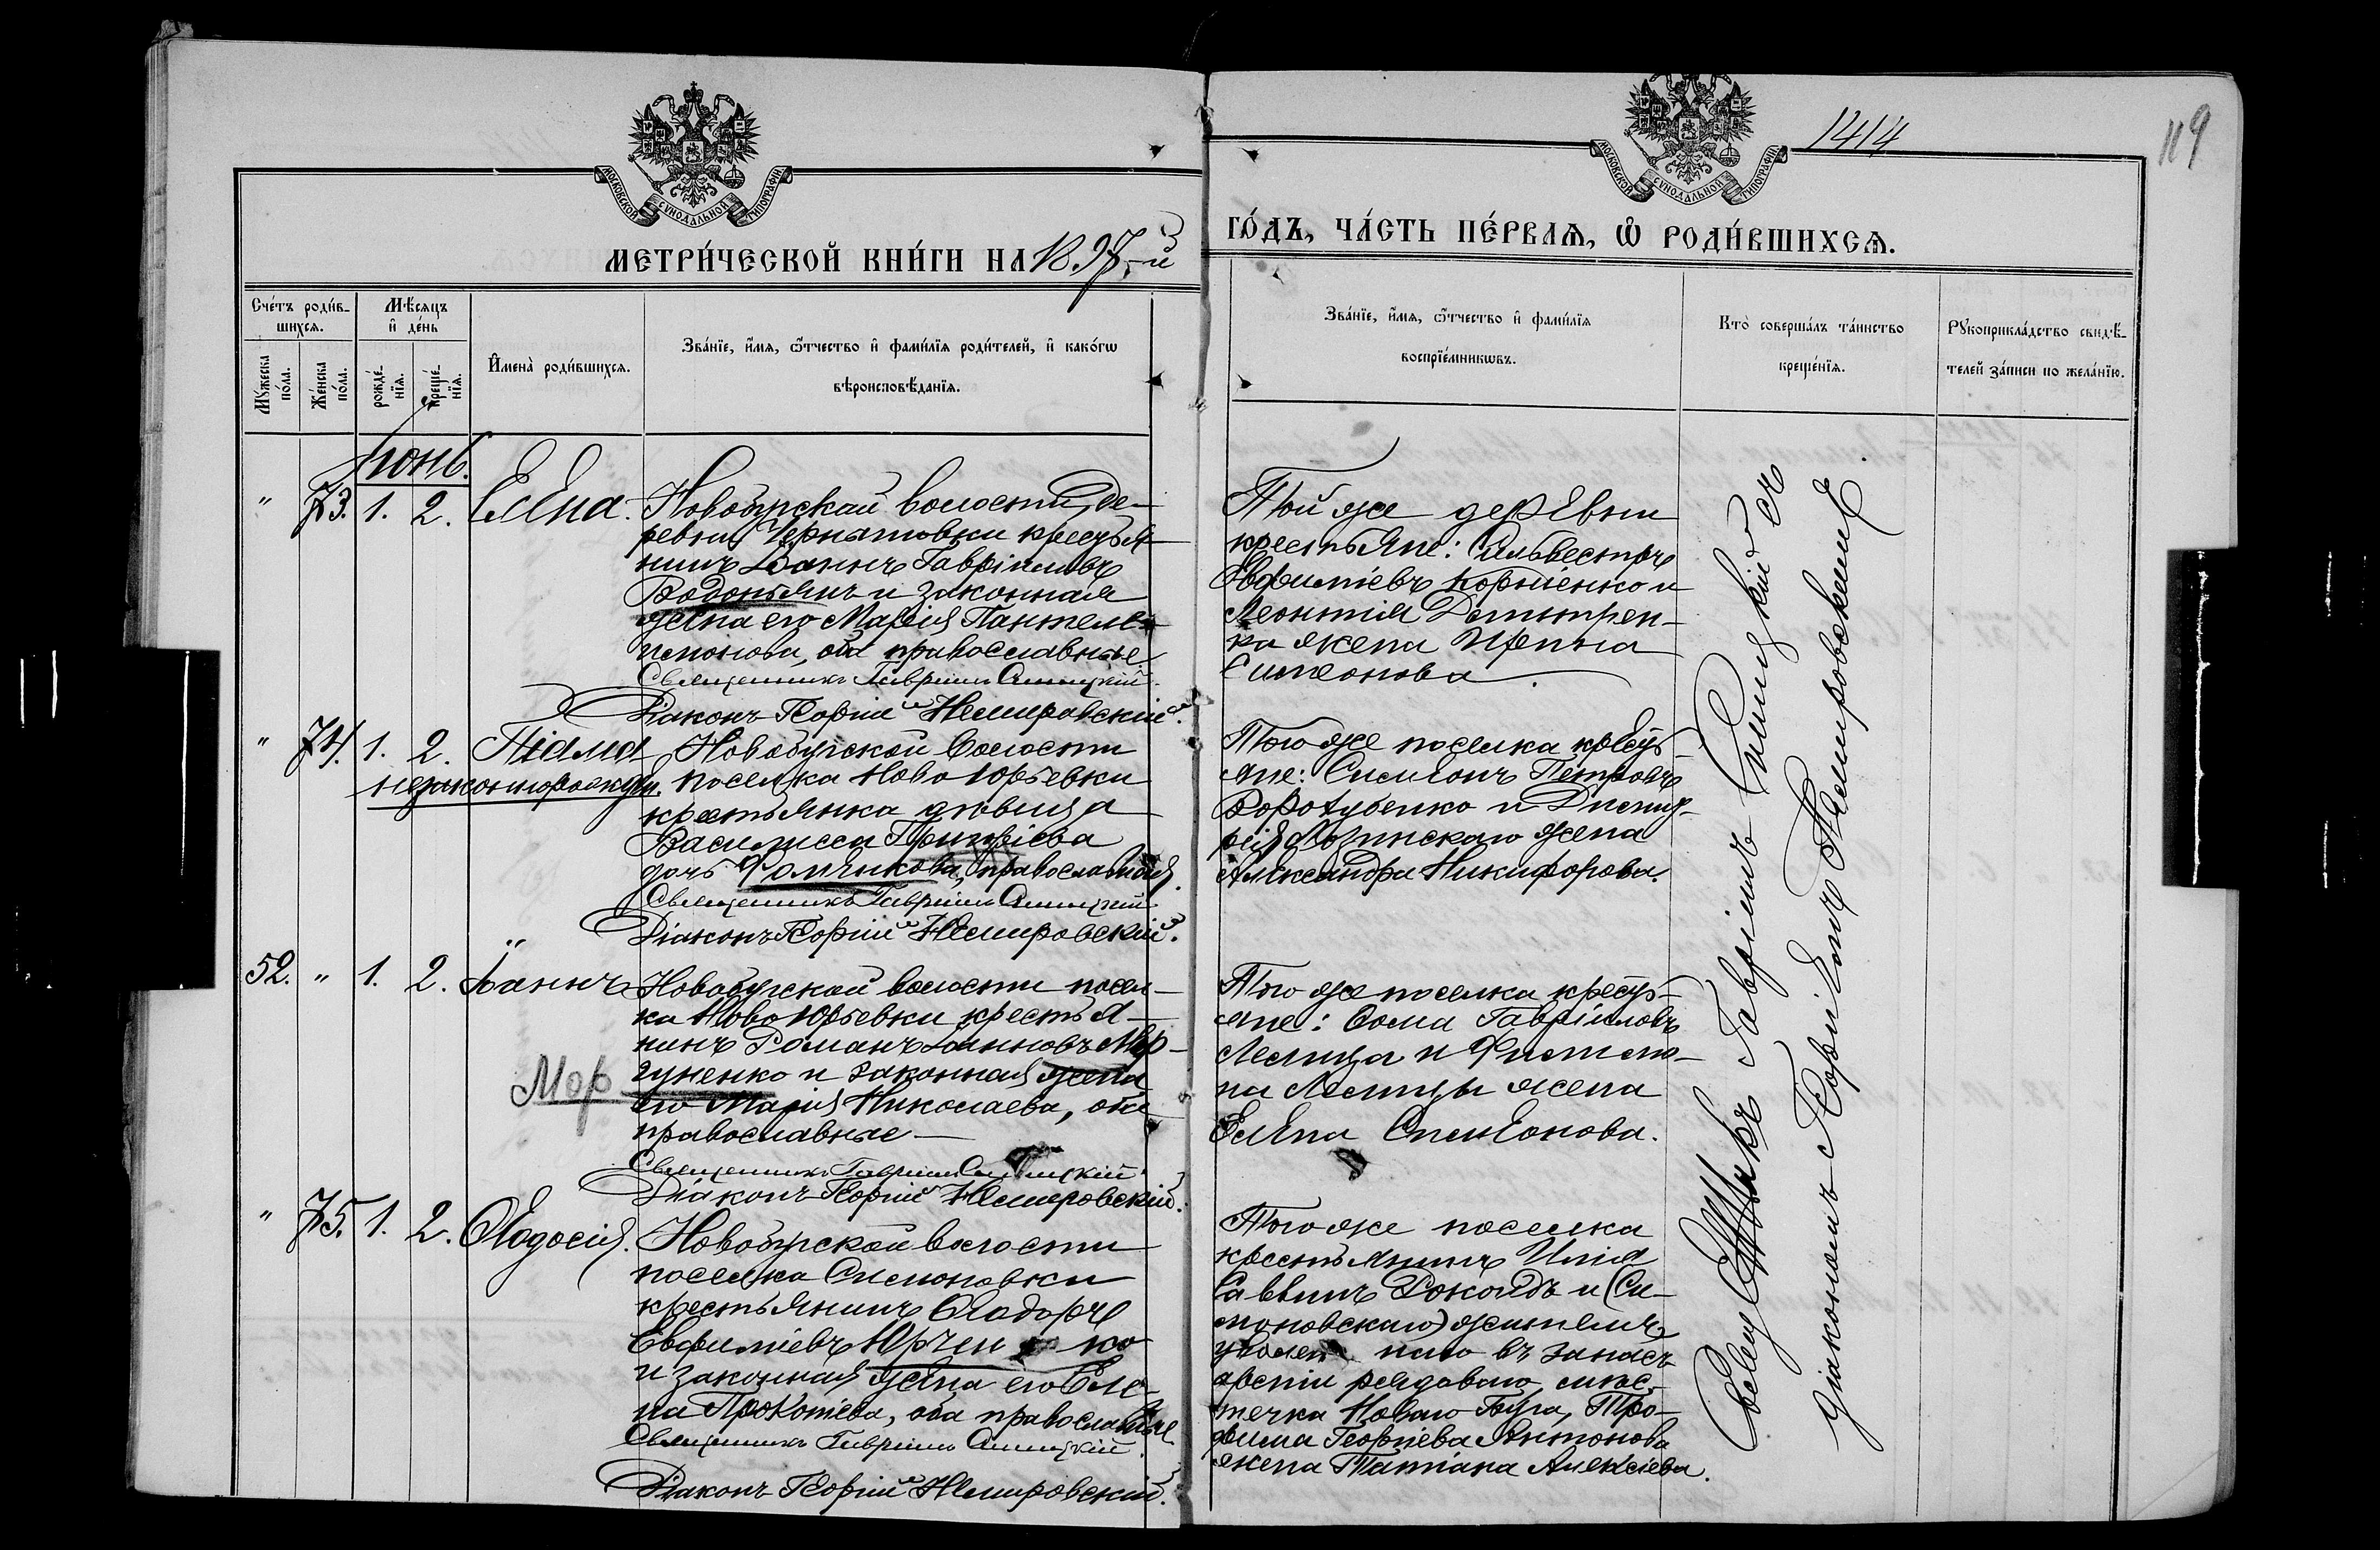 1414
119
МОСКОВСКОЙ СѴНОДАЛЬНОЙ ТИПОГРАФІИ
МОСКОВСКОЙ СѴНОДАЛЬНОЙ ТИПОГРАФІИ
МЕТРИ́ЧЕСКОЙ КНИ́ГИ НА 1897-й
ГО́ДЪ, ЧА́СТЬ ПЕ́РВАѦ, Ѡ҆ РОДИ́ВШИХСѦ.
Сче́тъ роди́в-
шихсѧ.
Мꙋ́жеска по́ла.
Же́нска по́ла.
Мѣ́сѧцъ
и҆ де́нь
рожде́-
нїѧ.
креще́-
нїѧ.
И҆мена̀ роди́вшихсѧ.
Зва́нїе, и҆́мѧ, ѻ҆́тчество и҆ фами́лїѧ роди́телей, и҆ како́гѡ
вѣроисповѣ́данїѧ.
Зва́нїе, и҆́мѧ, ѻ҆́тчество и҆ фами́лїѧ
воспрїе́мникѡвъ.
Кто̀ соверша́лъ та́инство
креще́нїѧ.
Рꙋкоприкла́дство свидѣ́-
телей за́писи по жела́нїю.
Іюнь.
" 73. 1. 2. Елена.
Новобугской волости, де-
ревни Чернатовки крестья-
нинъ Іоаннъ Гавріиловъ
Водопьянъ и законная
жена его Марія Пантеле-
имонова, оба православные
Священникъ Гавріилъ Синицкій.
Діаконъ Георгій Немировскій.
Той же деревни
крестьяне: Сильвестръ
Евфиміевъ Корніенко и
Леонтія Дмитрен-
ка жена Ирина
Симеонова.
" 74. 1. 2.
незаконнорожден.
Новобугской волости
поселка Ново Юрьевки
крестьянка девица
Василисса Григоріева
дочь Фомичкова, православная.
Священникъ Гавріилъ Синицкій
Діаконъ Георгій Немировскій.
Того же поселка кресть-
яне: Симеонъ Петровъ
Воротубенко и Димит-
рія Лозинскаго жена
Александра Никифорова.
52. " 1. 2. Іоаннъ
Новобугской волости посел-
ка Ново Юрьевки крестья-
нинъ Романъ Іоанновъ Мор-
гуненко и законная жена
его Марія Николаева, оба
православные
Мор
Священникъ Гавріилъ Синицкій
Діаконъ Георгій Немировскій.
Того же поселка кресть-
яне: Ѳома Гавріиловъ
Лемица и Филимо-
на Лемицы жена
Елена Симеонова.
" 75. 1. 2. Ѳеодосія.
Новобугской волости
поселка Симоновки
крестьянинъ Ѳеодоръ
Евфиміевъ Юрчен ко
и законная жена его Еле-
на Прокопіева, оба православные
Священникъ Гавріилъ Синицкій.
Діаконъ Георгій Немировскій.
Того же поселка
крестьянинъ Илія
Саввинъ и (Си-
моновскаго) жителя
уволен наго въ запасъ
арміи рядоваго, мѣс-
течка Новаго Буга, Тро-
фима Георгіева Антонова
жена Татіана Алексіева.
Священникъ Гавріилъ Синицкій съ
діакономъ Георгіемъ Немировскимъ.